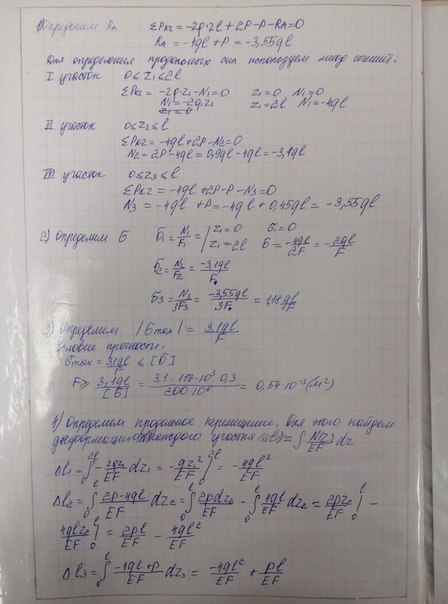 1) Определим R_A ΣP_KZ = -2q·2l + 2P - P - R_A = 0
R_A = -4ql + P = -3,55ql
Для определения продольных сил используем метод сечений:
I участок 0≤z₁≤2l
ΣP_KZ = -2q·z₁ - N₁ = 0 z₁=0 N₁=0
N₁ = -2qz₁ z₁=2l N₁=-4ql
z₁=0
II участок 0≤z₂≤l
ΣP_KZ = -4ql + 2P - N₂ = 0
N₂ = 2P - 4ql = 0,9ql - 4ql = -3,1ql
III участок 0≤z₃≤l
ΣP_KZ = -4ql + 2P - P - N₃ = 0
N₃ = -4ql + P = -4ql + 0,45ql = -3,55ql
2) Определим б б₁ = N₁/F₁ = | z₁=0 б=0
z₁=2l б = -4ql/2F = -2ql/F
б₂ = N₂/F₂ = -3,1ql/F
б₃ = N₃/3F₃ = -3,55ql/3F = 1,18 ql/F
3) Определим |бmax| = 3,1ql/F
Условие прочности:
бmax = 3,1ql/F ≤ [б]
F ≥ 3,1ql/[б] = 3,1·117·10³·0,3/200·10⁶ = 0,54·10⁻³ (м²)
4) Определим продольное перемещение. Для этого найдем
деформации каждого участка = ∫ N(z)/EF dz
Δl₁ = ∫₀²ˡ -2qz₁/EF dz₁ = -qz₁²/EF |₀²ˡ = -4ql²/EF
Δl₂ = ∫₀ˡ 2P-4ql/EF dz₂ = ∫₀ˡ 2P dz₂/EF - ∫₀ˡ 4ql/EF dz₂ = 2Pz₂/EF |₀ˡ -
4qlz₂/EF |₀ˡ = 2Pl/EF - 4ql²/EF
Δl₃ = ∫₀ˡ -4ql+P/EF dz₃ = -4ql²/EF + Pl/EF